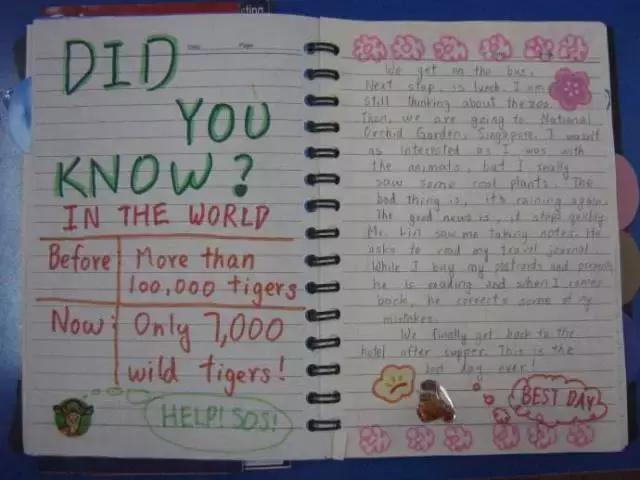 Date Page
DID
YOU
KNOW?
IN THE WORLD
Before More than
100,000 tigers
Now: Only 7,000
wild tigers!
HELP! SOS!
We get on the bus.
Next stop, is lunch. I am
still thinking about the zoo.
Then, we are going to National
Orchid Garden, Singapore. I wasn't
as interested as I was with
the animals, but I really
saw some cool plants. The
bad thing is, it's raining again.
The good news is, it stops quickly.
Mr. Lin saw me taking notes. He
asks to read my travel journal.
While I buy my postcards and presents,
he is reading and when I comes
back, he corrects some of my
mistakes.
We finally get back to the
hotel after supper. This is the
best day ever!
BEST DAY